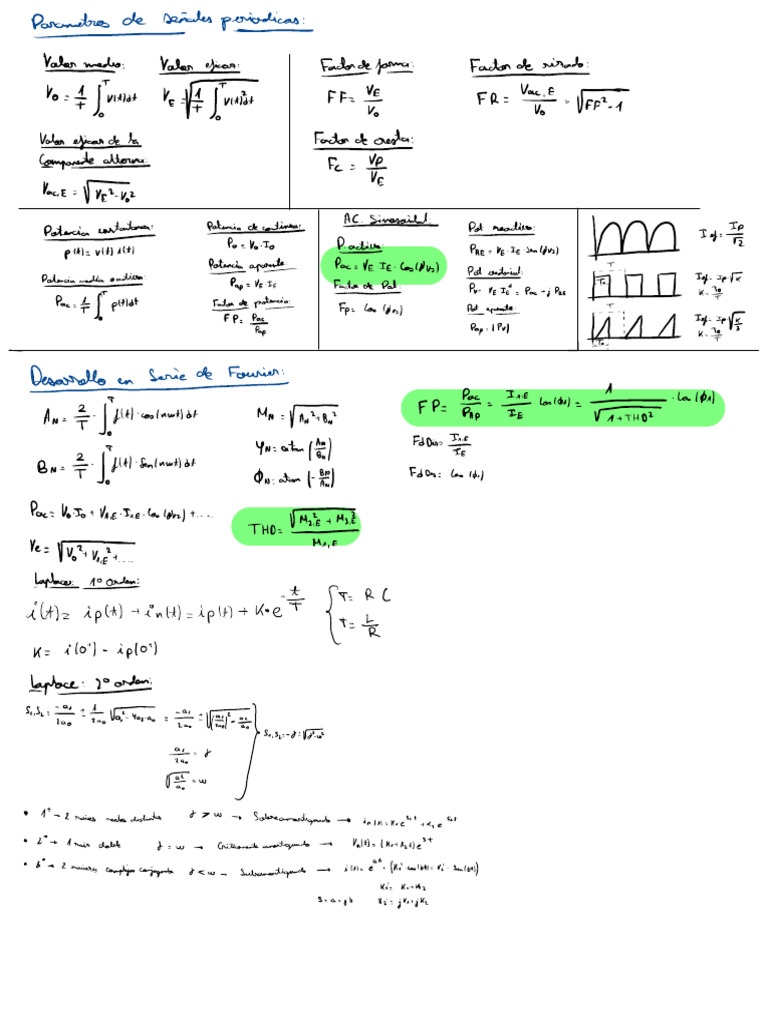 Parametros de señales periodicas:
Valor medio:
V₀ = 1/T ∫₀ᵀ v(t)dt
Valor eficaz:
V_E = √(1/T ∫₀ᵀ v(t)² dt)
Valor eficaz de la
Componente alterna:
V_ac,E = √(V_E² - V₀²)
Factor de forma:
FF = V_E/V₀
Factor de cresta:
F_C = V_P/V_E
Factor de rizado:
FR = V_ac,E/V₀ = √(FF² - 1)
Potencia instantanea:
p(t) = v(t) i(t)
Potencia media o activa:
P_ac = 1/T ∫₀ᵀ p(t)dt
Potencia de continua:
P₀ = V₀ · I₀
Potencia aparente
P_ap = V_E I_E
Factor de potencia:
FP = P_ac/P_ap
AC. Sinusoidal.
P. activa
P_ac = V_E I_E · Cos(φ_V2)
Factor de Pot
F_P = Cos(φ_V2)
Pot reactiva:
P_RE = V_E · I_E · Sen(φ_V2)
Pot aparente
P_ap = |P_V|
T
I_ef = I_P/√2
I_ef = I_P √K
T
I_ef = I_P √(K/3)
Desarrollo en Serie de Fourier:
A_N = 2/T · ∫₀ᵀ f(t) · cos(nωt)dt
B_N = 2/T · ∫₀ᵀ f(t) · Sen(nωt)dt
M_N = √(A_N² + B_N²)
φ_N: atan(-B_N/A_N)
FP = P_ac/P_AP = I_1,E/I_E Cos(φ1) = 1/√(1+THD²) · Cos(φ1)
FdDis = I_1,E/I_E
FdDes = Cos(φ1)
P_ac = V₀ · I₀ + V_1,E · I_1,E · Cos(φ_V2) + ....
V_e = √(V₀² + V_1,E² + ....)
THD = √(M_2,E² + M_3,E²)/M_1,E
Laplace: 1º orden:
i(t) = ip(t) + in(t) = ip(t) + K·e^(-t/T)
T = RC
T = L/R
K = i(0⁺) - ip(0⁺)
Laplace: 2º orden:
S₁,S₂ = -a₁/2a₀ ± 1/2a₀ √(a₁² - 4a₂·a₀) = -a₁/2a₀ ± √((a₁/2a₀)² - a₂/a₀)
S₁,S₂ = -γ ± √(γ² - ω²)
a₁/2a₀ = γ
√(a₂/a₀) = ω
• 1º → 2 raices reales distintas γ > ω → Sobreamortiguado → in(t) = K₁e^(S₁t) + K₂e^(S₂t)
• 2º → 1 raiz doble γ = ω → Criticamente amortiguado → (K₁ + K₂t)e^(St)
• 3º → 2 raices complejas conjugadas γ < ω → Subamortiguado →
K₁' = K₁ + K₂
S = a + jb